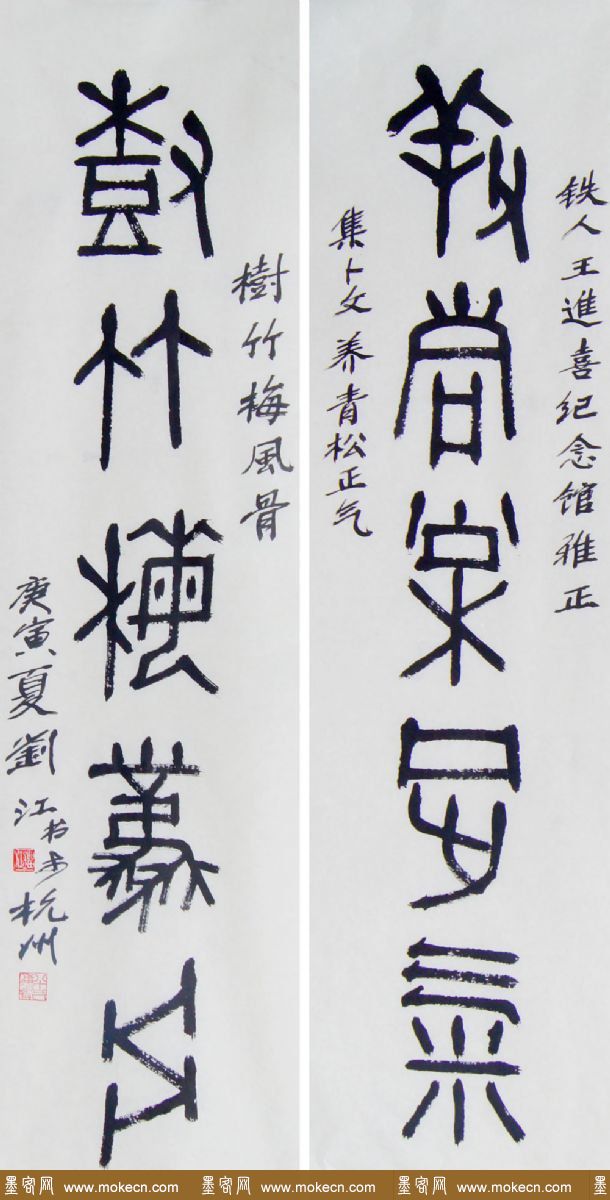 铁人王進喜纪念馆雅正
養青松正氣
集卜文养青松正气
樹竹梅風骨
樹竹梅風骨
庚寅夏劉江书于杭州
墨客网 www.mokecn.com 墨客网 www.mokecn.com 墨客网 www.mokecn.com 墨客网